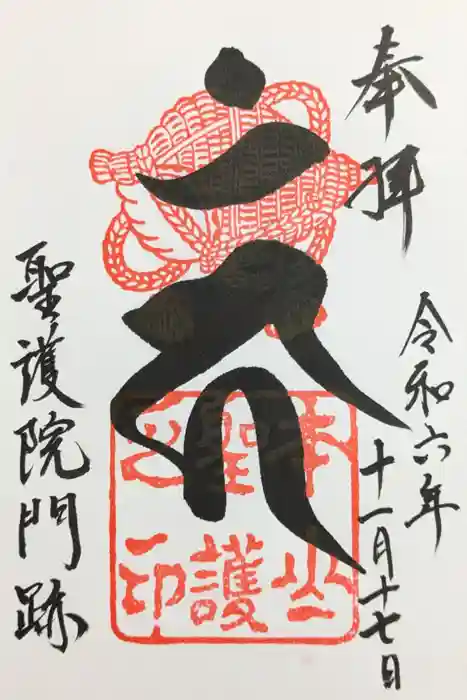 奉拝
令和六年
十一月十七日
聖護院門跡
本山
聖護
之印